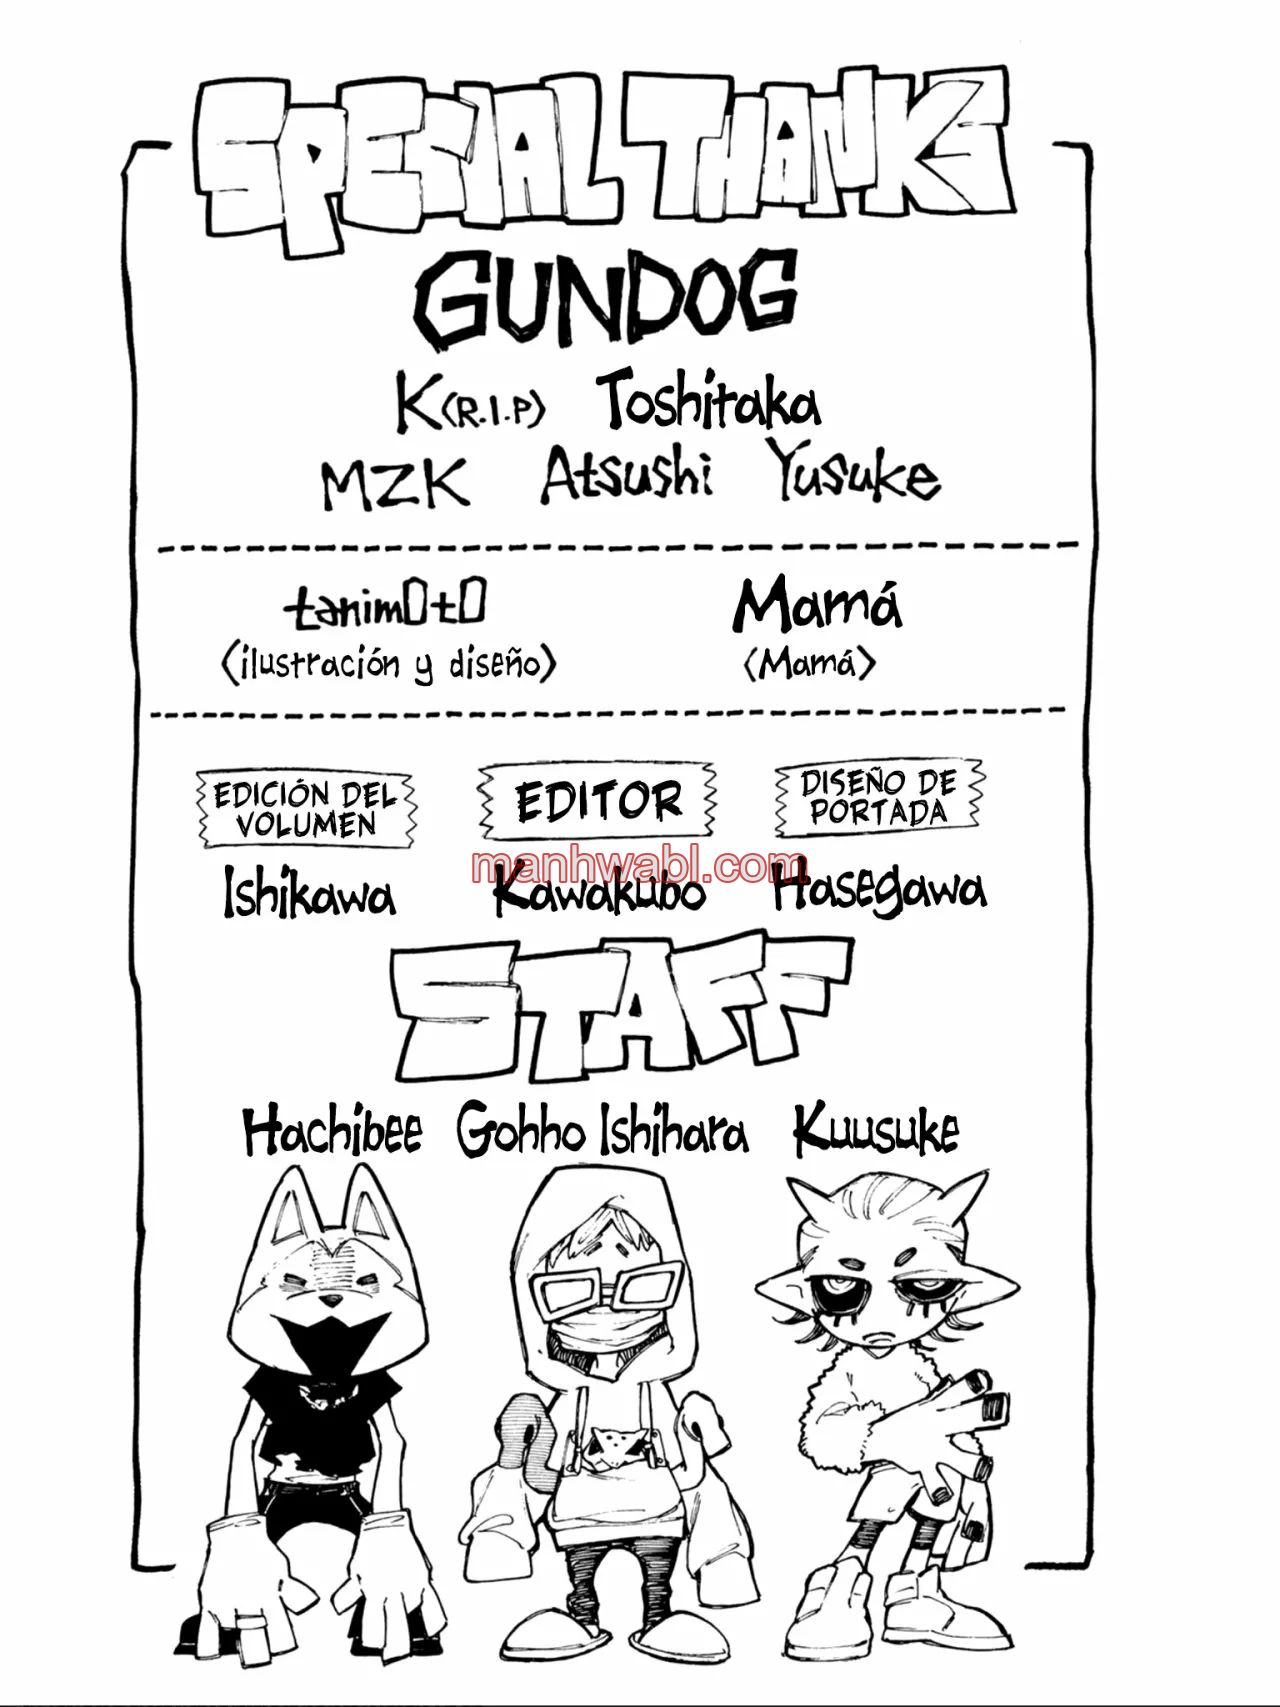 SPECIAL THANKS
GUNDOG
K(R.I.P) Toshitaka
MZK Atsushi Yusuke
tanim0t0 Mamá
(ilustración y diseño) (Mamá)
EDICIÓN DEL VOLUMEN
Ishikawa
EDITOR
Kawakubo
DISEÑO DE PORTADA
Hasegawa
manhwabl.com
STAFF
Hachibee Gohho Ishihara Kuusuke